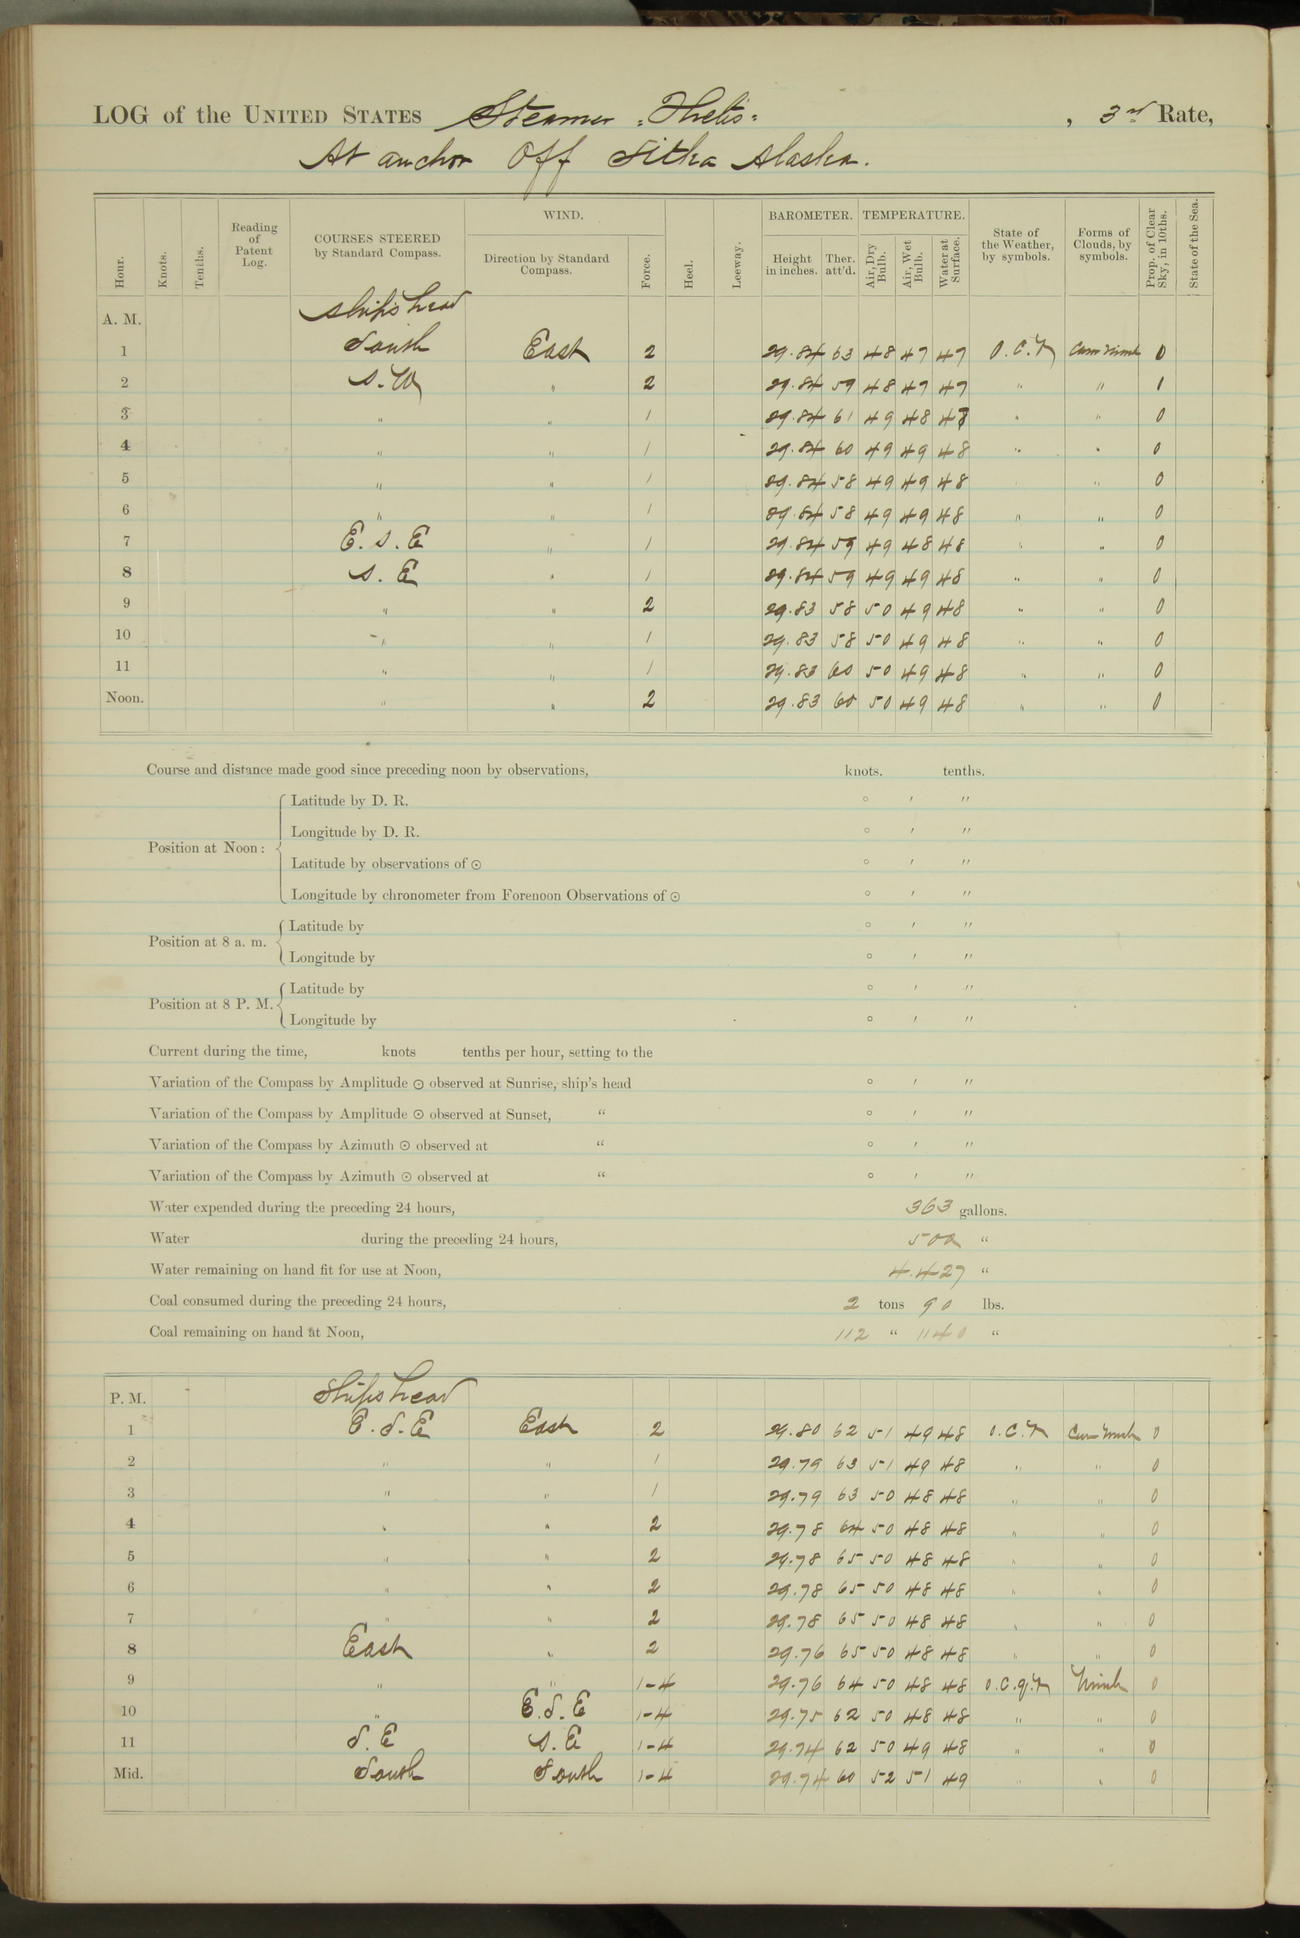 LOG of the UNITED STATES Steamer "Thetis" , 3rd Rate,
At anchor Off Sitka Alaska.
Hour. Knots. Tenths. Reading of Patent Log. COURSES STEERED by Standard Compass. WIND. Direction by Standard Compass. Force. Heel. Leeway. BAROMETER. Height in inches. Ther. att'd. TEMPERATURE. Air, Dry Bulb. Air, Wet Bulb. Water at Surface. State of the Weather, by symbols. Forms of Clouds, by symbols. Prop. of Clear Sky, in 10ths. State of the Sea.
A. M. Ship's head
1 South East 2 29.84 63 48 47 47 O.C.r Cum Nimb 0
2 S.W " 2 29.84 59 48 47 47 " " 1
3 " " 1 29.84 61 49 48 48 " " 0
4 " " 1 29.84 60 49 49 48 " " 0
5 " " 1 29.84 58 49 49 48 " " 0
6 " " 1 29.84 58 49 49 48 " " 0
7 E.S.E " 1 29.84 59 49 48 48 " " 0
8 S.E " 1 29.84 59 49 49 48 " " 0
9 " " 2 29.83 58 50 49 48 " " 0
10 " " 1 29.83 58 50 49 48 " " 0
11 " " 1 29.83 60 50 49 48 " " 0
Noon. " " 2 29.83 60 50 49 48 " " 0
Course and distance made good since preceding noon by observations, knots. tenths.
Position at Noon:
Latitude by D. R. ° ′ ″
Longitude by D. R. ° ′ ″
Latitude by observations of ☉ ° ′ ″
Longitude by chronometer from Forenoon Observations of ☉ ° ′ ″
Position at 8 a. m.
Latitude by ° ′ ″
Longitude by ° ′ ″
Position at 8 P. M.
Latitude by ° ′ ″
Longitude by ° ′ ″
Current during the time, knots tenths per hour, setting to the
Variation of the Compass by Amplitude ☉ observed at Sunrise, ship's head ° ′ ″
Variation of the Compass by Amplitude ☉ observed at Sunset, " ° ′ ″
Variation of the Compass by Azimuth ☉ observed at " ° ′ ″
Variation of the Compass by Azimuth ☉ observed at " ° ′ ″
Water expended during the preceding 24 hours, 363 gallons.
Water during the preceding 24 hours, 500 "
Water remaining on hand fit for use at Noon, 4.427 "
Coal consumed during the preceding 24 hours, 2 tons 90 lbs.
Coal remaining on hand at Noon, 112 " 1140 "
P. M. Ships head
1 E.S.E East 2 29.80 62 51 49 48 O.C.r Cum Nimb 0
2 " " 1 29.79 63 51 49 48 " " 0
3 " " 1 29.79 63 50 48 48 " " 0
4 " " 2 29.78 64 50 48 48 " " 0
5 " " 2 29.78 65 50 48 48 " " 0
6 " " 2 29.78 65 50 48 48 " " 0
7 " " 2 29.78 65 50 48 48 " " 0
8 East " 2 29.76 65 50 48 48 " " 0
9 " " 1-4 29.76 64 50 48 48 O.C.q.r Nimb 0
10 " E.S.E 1-4 29.75 62 50 48 48 " " 0
11 S.E S.E 1-4 29.74 62 50 49 48 " " 0
Mid. South South 1-4 29.74 60 52 51 49 " " 0